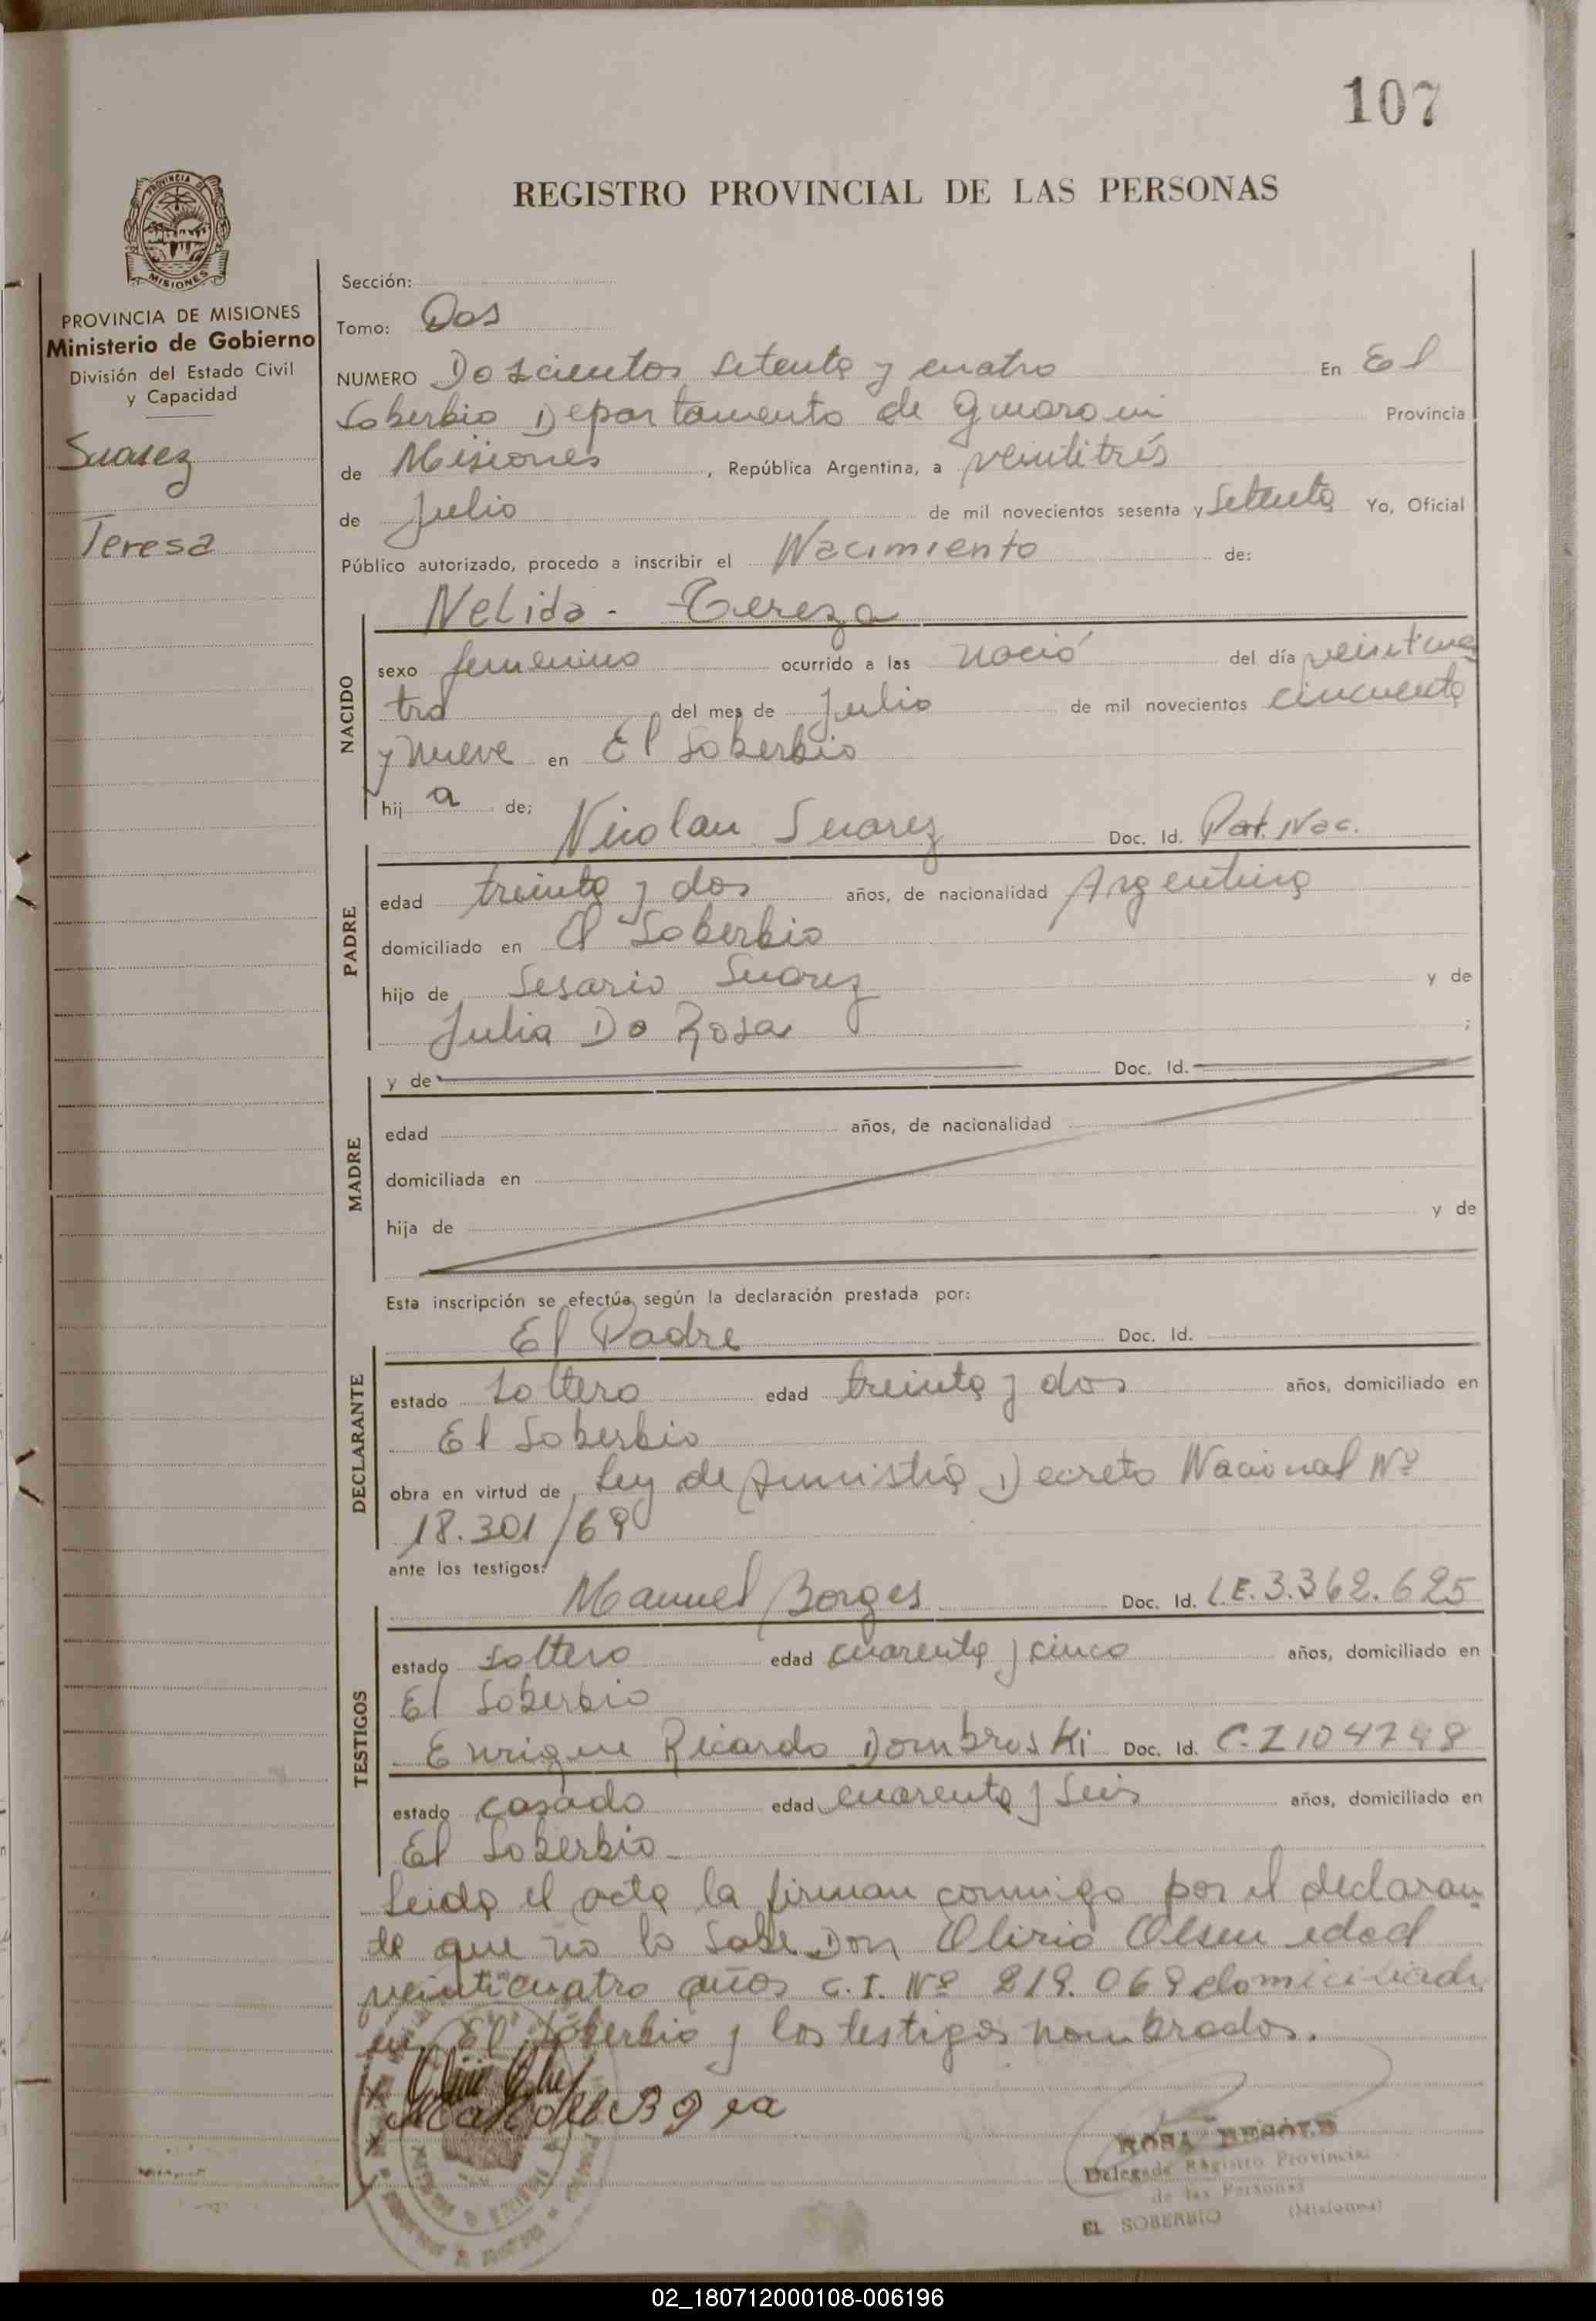 107
REGISTRO PROVINCIAL DE LAS PERSONAS
MISIONES
PROVINCIA DE MISIONES
Ministerio de Gobierno
División del Estado Civil
y Capacidad
Suarez
Teresa
Sección:
Tomo: Dos
NUMERO Doscientos Setenta y cuatro En El
Soberbio Departamento de Guarani Provincia
de Misiones , República Argentina, a veintitrés
de Julio de mil novecientos sesenta y Setenta Yo, Oficial
Público autorizado, procedo a inscribir el Nacimiento de:
Nelida - Tereza
NACIDO
sexo femenino ocurrido a las nació del día veinticua
tro del mes de Julio de mil novecientos cincuenta
y nueve en El Soberbio
hij a de; Nicolau Suarez Doc. Id. Pat. Nac.
PADRE
edad treinta y dos años, de nacionalidad Argentina
domiciliado en El Soberbio
hijo de Sesario Suarez y de
Julia Do Rosa ;
MADRE
y de Doc. Id.
edad años, de nacionalidad
domiciliada en
hija de y de
Esta inscripción se efectúa según la declaración prestada por:
El Padre Doc. Id.
DECLARANTE
estado Soltero edad treinta y dos años, domiciliado en
El Soberbio
obra en virtud de Ley de Amnistia Decreto Nacional Nº
18.301/69
ante los testigos:
Manuel Borges Doc. Id. L.E. 3.362.625
TESTIGOS
estado soltero edad cuarenta y cinco años, domiciliado en
El Soberbio
Enrique Ricardo Dombruski Doc. Id. C.I 104748
estado casado edad cuarenta y Seis años, domiciliado en
El Soberbio -
Leida el acta la firman conmigo por el declaran
te que no lo sabe Don Olirio Olsen edad
veinticuatro años C.I. Nº 219.069 domiciliado
en El Soberbio y los testigos nombrados.
Delegada Registro Provincial
de las Personas
EL SOBERBIO (Misiones)
02_180712000108-006196